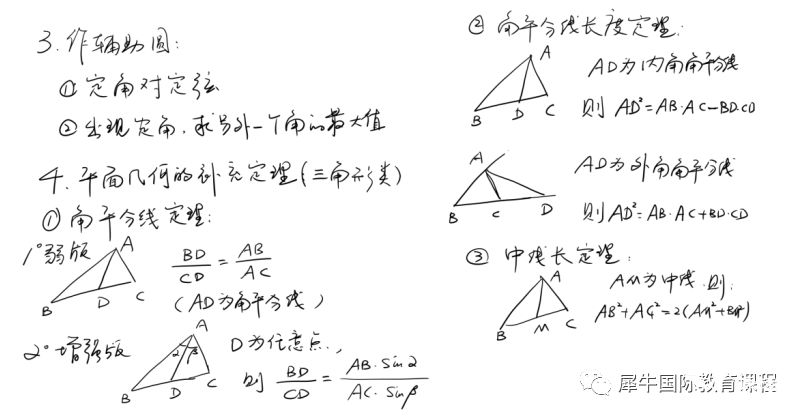 3. 作辅助圆:
① 定角对定弦
② 出现定角、求另外一个角的最大值
4. 平面几何的补充定理(三角形类)
① 角平分线定理:
1° 弱版
A
B D C
BD/CD = AB/AC
(AD为角平分线)
2° 增强版
A
α β
B D C
D为任意点,
则 BD/CD = AB·sinα/AC·sinβ
② 角平分线长度定理:
A
B D C
AD为内角角平分线
则 AD²=AB·AC-BD·CD
A
B C D
AD为外角角平分线
则AD²=AB·AC+BD·CD
③ 中线长定理:
A
B M C
AM为中线.则:
AB²+AC²=2(AM²+BM²)
犀牛国际教育课程